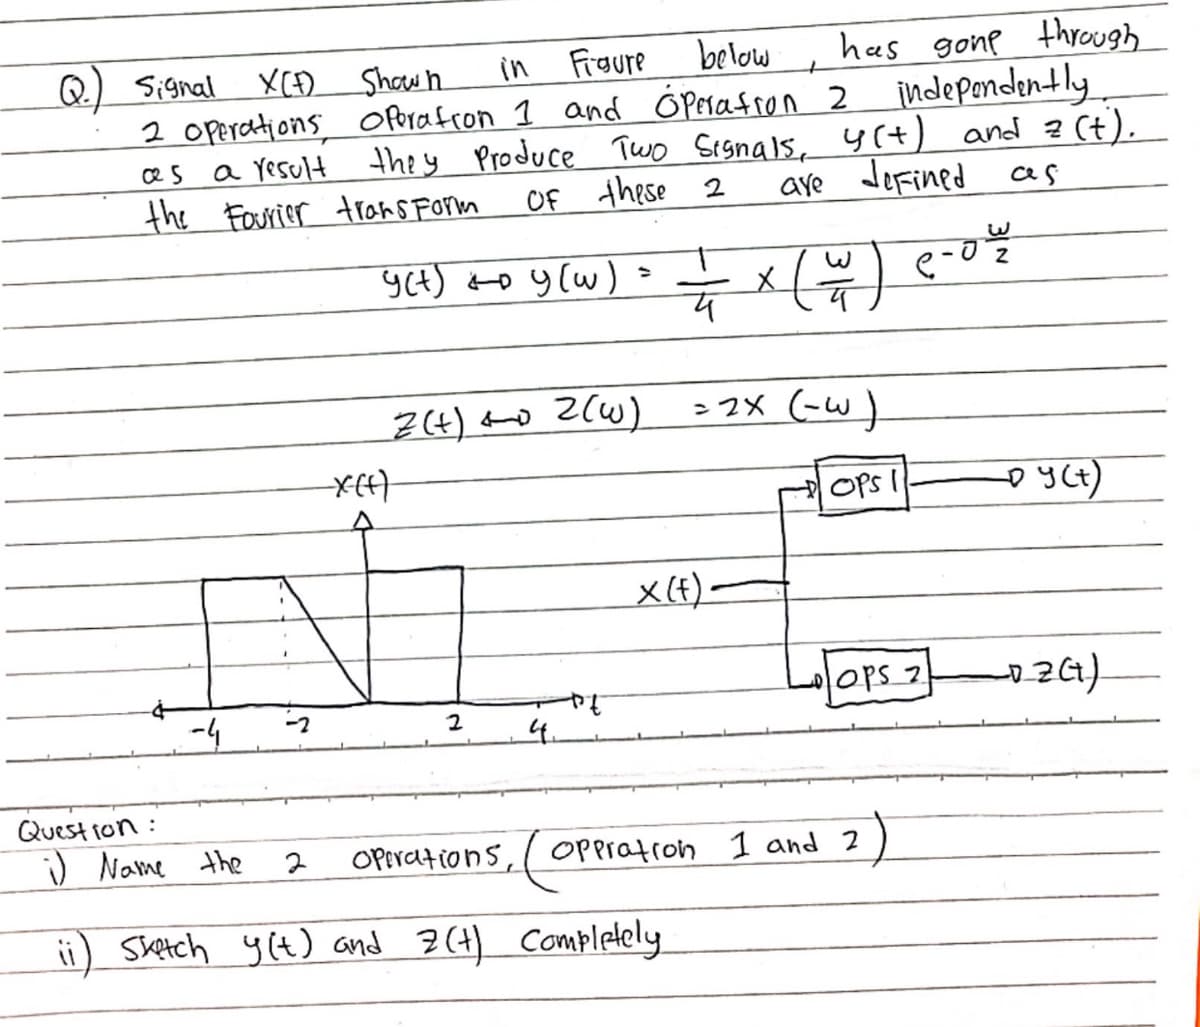 Q.) Signal X(t) Shown in Figure below, has gone through
2 operations, Operation 1 and Operation 2 independently.
as a result they Produce Two Signals, y(t) and z(t).
the Fourier transForm OF these 2 are deFined as
y(t) ↔ y(w) = 1/4 x (w/4) e-j w/2
z(t) ↔ Z(w) = 2X (-w)
X(t)
OPS 1 y(t)
X(t)
OPS 2 z(t)
-4 -2 2 4 t
Question :
i) Name the 2 operations, (operation 1 and 2)
ii) Sketch y(t) and z(t) Completely